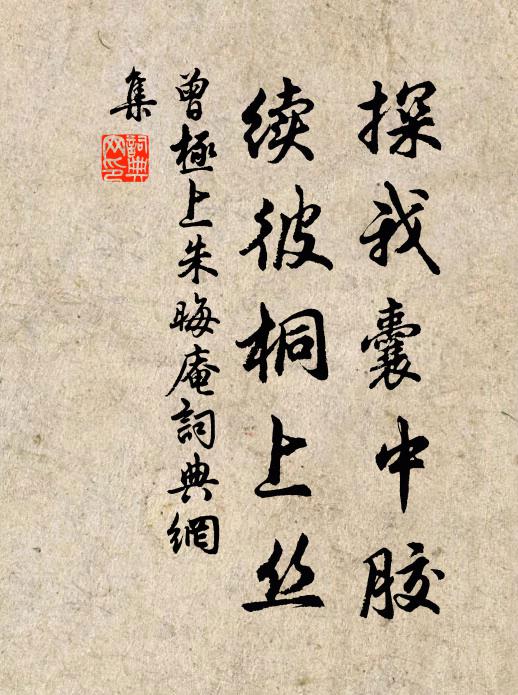 探我囊中胶
续彼桐上丝
曾極上朱晦庵詞典網
集
詞典
网印